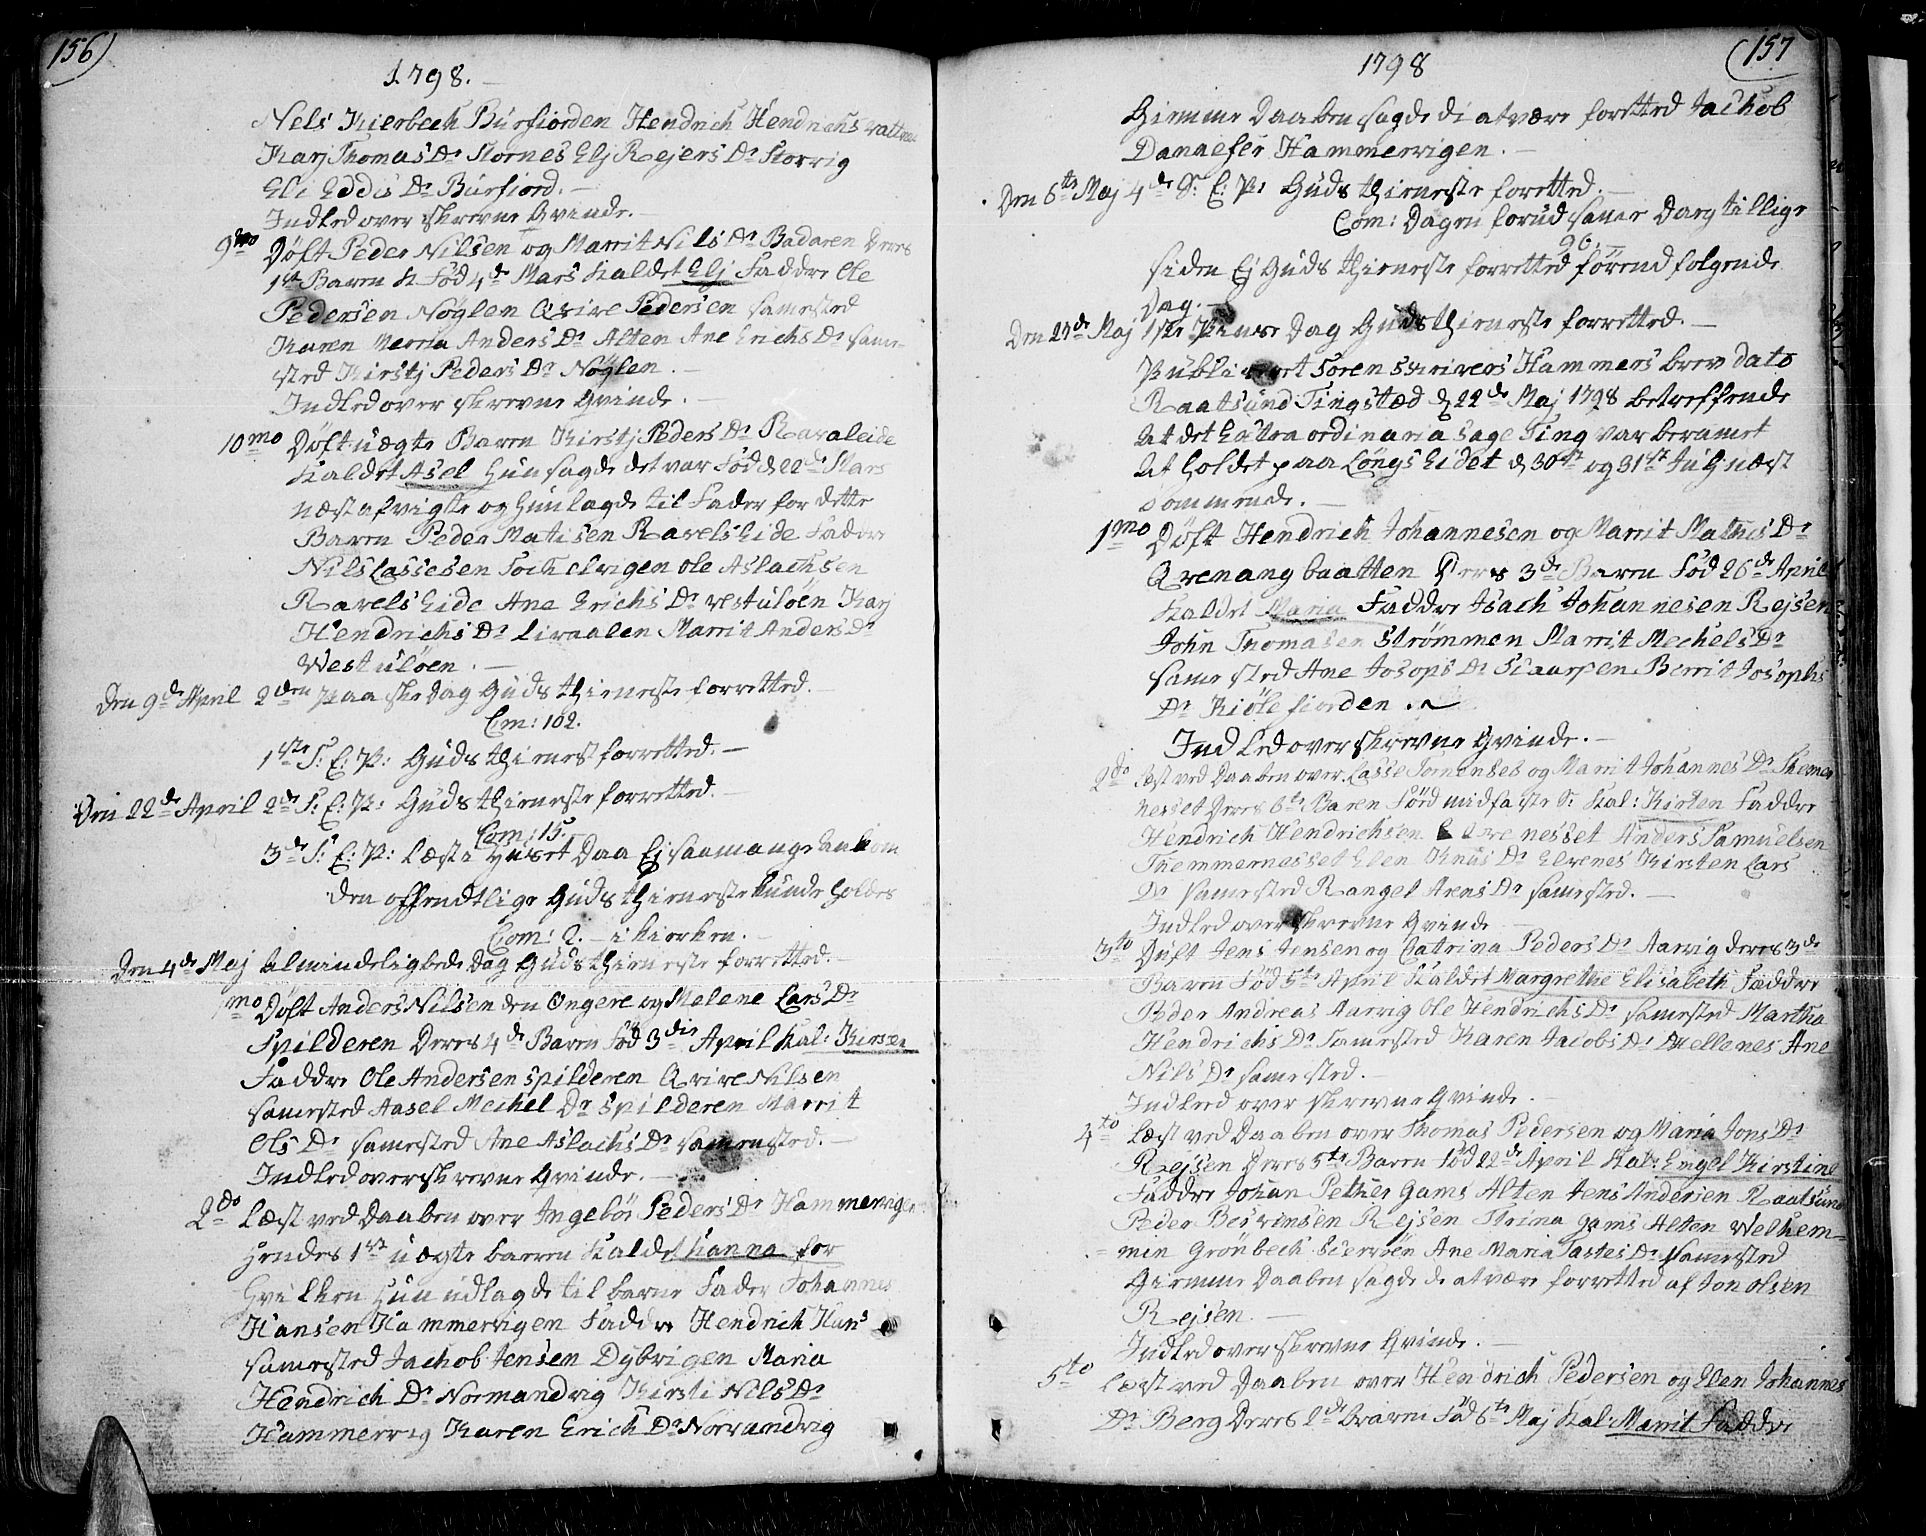 156)
1798.
Nels Kierbech Burfiorden Hendrich Hendrichs
Karj Thomas Dr Stornes Elj Rejers Dr Storvig
Eli Eddis Dr Burfiord.
Indled over skrevne Qvinde.
9no Döft Peder Nilsen og Marrit Nils Dr Badaren Deres
1ste Baren Föd 4de Mars kaldet Elj Faddre Ole
Pedersen Nöglen Qvive Pedersen samested
Karen Merria Anders Dr Alten Ane Erichs Dr same-
sted Kirstj Peders Dr Nöglen.
Indled over skrevne Qvinde.
10mo Döft uægte Baren Kirstj Peders Dr Ravaleide
Kaldet Asel Hun sagde det var Föd d 22de Mars
næst afvigte og Hun lagde til Fader for dette
Baren Peder Matisen Ravels Eide Faddre
Nils Lassesen Ole Aslachsen
Ravels Eide Ane Erichs Dr Vestulöen Karj
Hendrichs Dr Liraalen Marrit Anders Dr
Westulöen.
Den 9de April 2den Paaske dag Guds thieneste forretted.
Com: 102.
1ste S: E: P: Guds thienest forretted.
Den 22de April 2de S: E: P: Guds thieneste forretted.
Com: 15.
3de S: E: P: Læst i Huset Daa Ej saamange ankom
den offendtlige Guds thieneste kunde holdes
Com: 2. i kierken.
Den 4de Maj Almindelig bede Dag Guds thieneste forretted.
1mo Döft Anders Nilsen den Öngere og Melene Lars Dr
Spilderen Deres 4de Baren föd 3die April Kal: Kirsten
Faddre Ole Andersen Spilderen Qvive Nilsen
samested Aasel Mechel Dr Spilderen Marrit
Ols Dr samested Ane Aslachs Dr samensted.
Indled overskrevne Qvinde.
2do Læst ved Daaben over Ingebör Peders Dr Hammervigen
Hendes 1ste uægte barren Kaldet Hanna for
Hvilken Hun udlagde til barne Fader Johannes
Hansen Hammervigen Faddre Hendrich Hans
samested Jachob Jensen Dybvigen Maria
Hendrich Dr Normandvig Kirsti Nils Dr
Hammervig Karen Erich Dr Norvandvig
(157
1798
Hiemme Daaben sagde di at være foretted Jachob
Danaefer Hammervigen.
Den 6te Maj 4de S: E: P: Guds thieneste foretted.
Com: Dagen forud same Dag tillige
96
siden Ej Guds thieneste forretted förend folgende
Dag.
Den 27de Maj 1ste Pinse Dag Guds thieneste forretted.
Publiseret Sorenskrivers Hammers brev dato
Raatsund Tingstæd d 22de Maj 1798 betreffende
At det Extra ordinaria sage Ting var beramet
At Holdet paa Löngs Eidet d 30te og 31te Julj næst
kommende.
1mo Döft Hendrich Johannesen og Marrit Mathis Dr
Qvenangbaatten Deres 3de Baren Föd 26de April
Kaldet Maria Faddre Isach Johannesen Rejsen
John Thomasen Strömmen Marrit Mechels Dr
samested Ane Josops Dr Berrit Josophs
Dr Kiölefiorden.
Indled over skrevne Qvinde.
2do Læst ved Daaben over Lasse og Marrit Johannes Dr
nesset Deres 6te Baren Förd midfaste S: Kal: Kirsten Faddre
Hendrich Hendrichsen nesset Anders Samuelsen
Themmernesset Elen Knus Dr Elvenes Kirsten Lars
Dr samested Rangel Arens Dr samested.
Indled over skrevne Qvinde
3to Döft Jens Jensen og Catrina Peders Dr Aarvig deres 3de
Baren Föd 5te April Kaldet Margrethe Elisabeth Faddre
Peder Andreas Aarvig Ole Hendrichs Dr samested Martha
Hendrichs Dr samested Karen Jacobs Dr Mellenes Ane
Nils Dr samested.
Indled over skrevne Qvinde.
4to Læst ved Daaben over Thomas Pedersen og Maria Jons Dr
Rejsen Deres 5te Baren föd 22de April Kal: Engel Kirstine
Faddre Johan Pether Gams Alten Jens Andersen Raatsund
Peder Besvinsen Rejsen Strina Gams Alten Welhem-
min Grönbech Skiervöen Ane Maria Tastes Dr samested
Hiemme Daaben sagde de at være forretted af Jon Olsen
Rejsen.
Indled over skrevne Qvinde.
5to Læst ved Daaben over Hendrich Pedersen og Elen Johannes
Dr Berg Deres Baren Föd 6te Maj Kal: Marrit Faddre